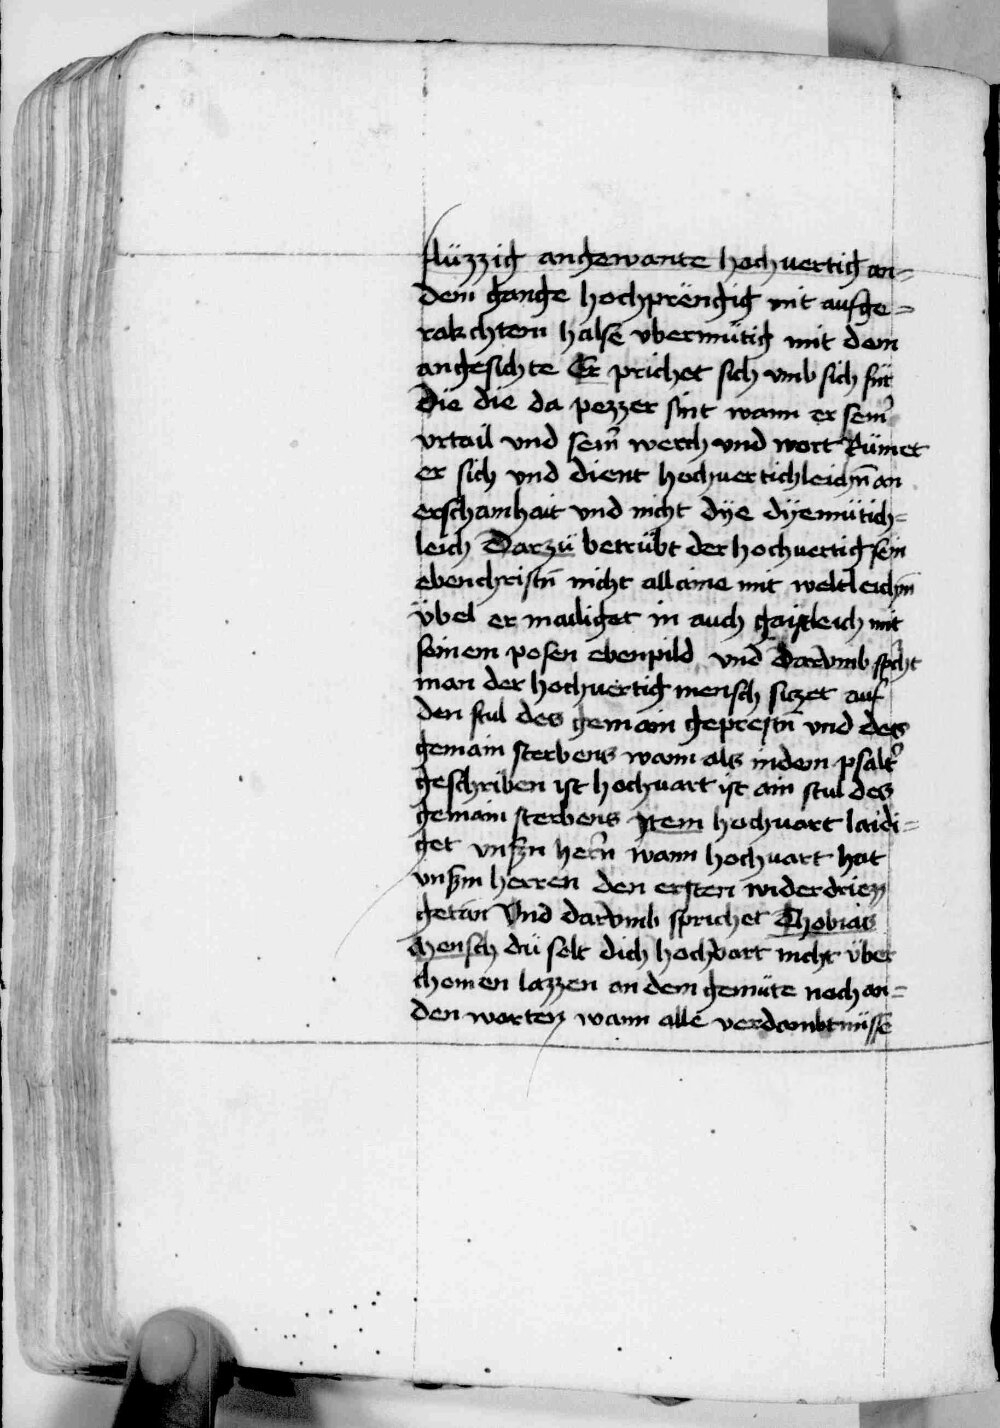 flüzzig angewante hochuertig an=
dem gange hochprëngig mit aufge=
rakchtem halse vbermütig mit dem
angesichte Er prichet sich vmb sich für
die die da pezzer sint wann er sein̄
vrtail vnd sein̄ werch vnd wort Rümet
er sich vnd dient hochuertichleichn̄ an
erschamhait vnd nicht dÿe dÿemütich=
leich Darzü betrübt der hochuertig sein
ebenchristn̄ nicht allaine mit weltleichn̄
übel er mailiget in auch gaistleich mit
seinem posen ebenpild vnd Darvmb spricht
man der hochuertig mensch siczet auf
den stul des gemain geprestn̄ vnd des
gemain sterbens wann als in dem psalt̄
geschriben ist hochuart ist ain stul des
gemain sterbens Item hochuart laidi=
get vnsn herrn wann hochuart hat
vnsm herren den ersten widerdriezz
getan Vnd darvmb sprichet Thobias
Mensch dü solt dich hochvart nicht über
chomen lazzen an dem gemüte noch an=
den worten wann alle verdambtnüsse